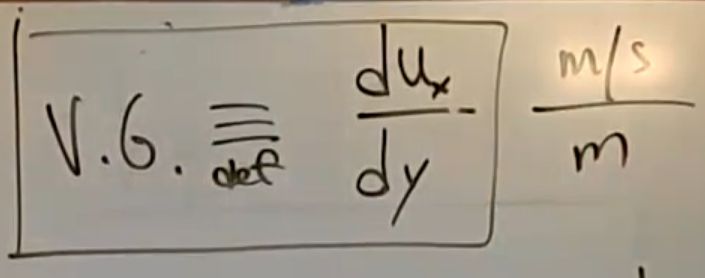 V.G. ≡ def du_x/dy (m/s)/m